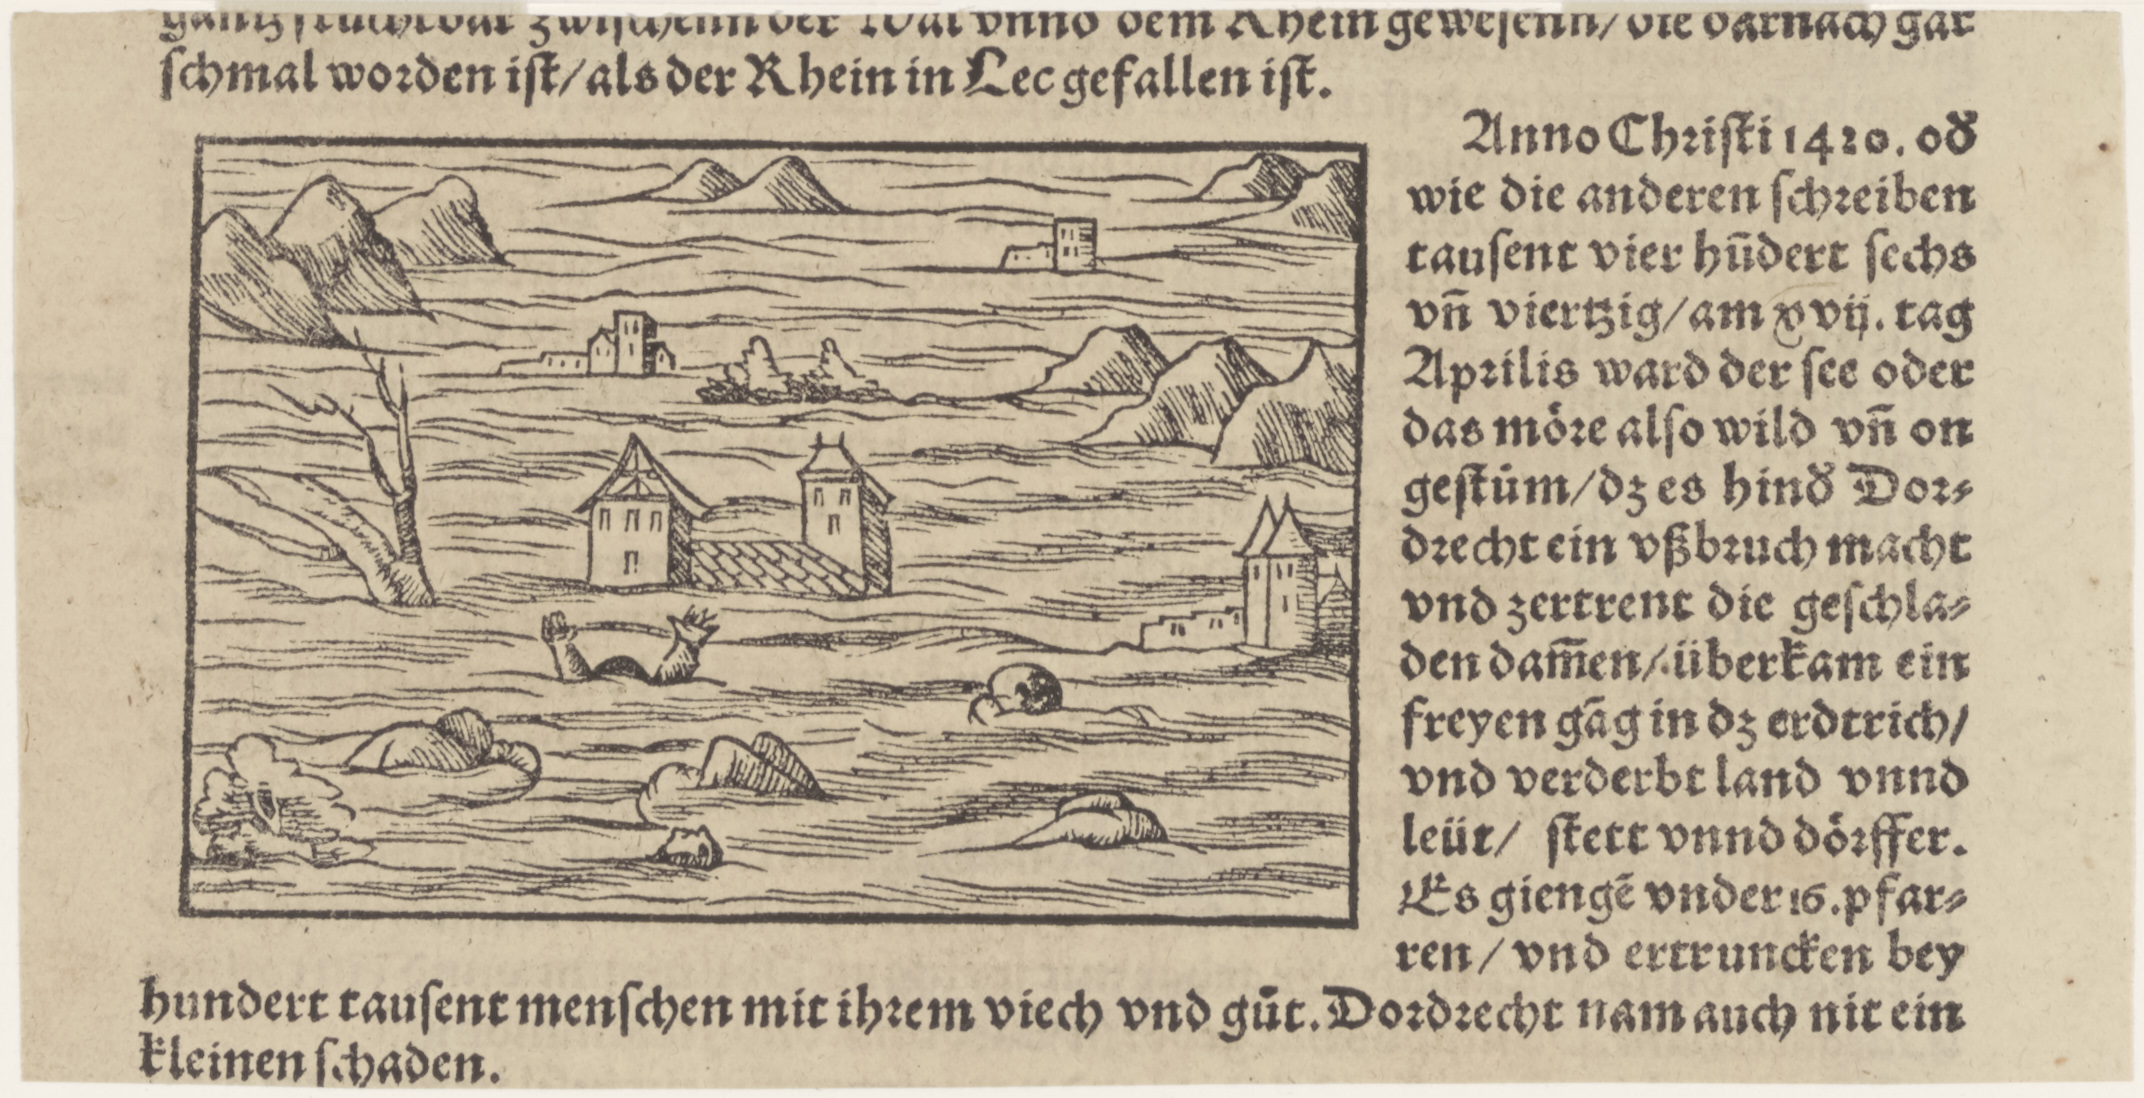 gantz fruchtbar zwischenn der Wal vnnd dem Rhein gewesenn/ die darnach gar
schmal worden ist/ als der Rhein in Lec gefallen ist.
Anno Christi 1420. oď
wie die anderen schreiben
tausent vier hūdert sechs
vn̄ viertzig/ am xvij. tag
Aprilis ward der see oder
das mỏre also wild vn̄ on
gestům/ dz es hinď Dor⸗
drecht ein vßbruch macht
vnd zertrent die geschla⸗
den dam̄en/ überkam ein
freyen gāg in dz erdtrich/
vnd verderbt land vnnd
leüt/ stett vnnd dörffer.
Es giengē vnder 16. pfar⸗
ren/ vnd ertruncken bey
hundert tausent menschen mit ihrem viech vnd gůt. Dordrecht nam auch nit ein
kleinen schaden.